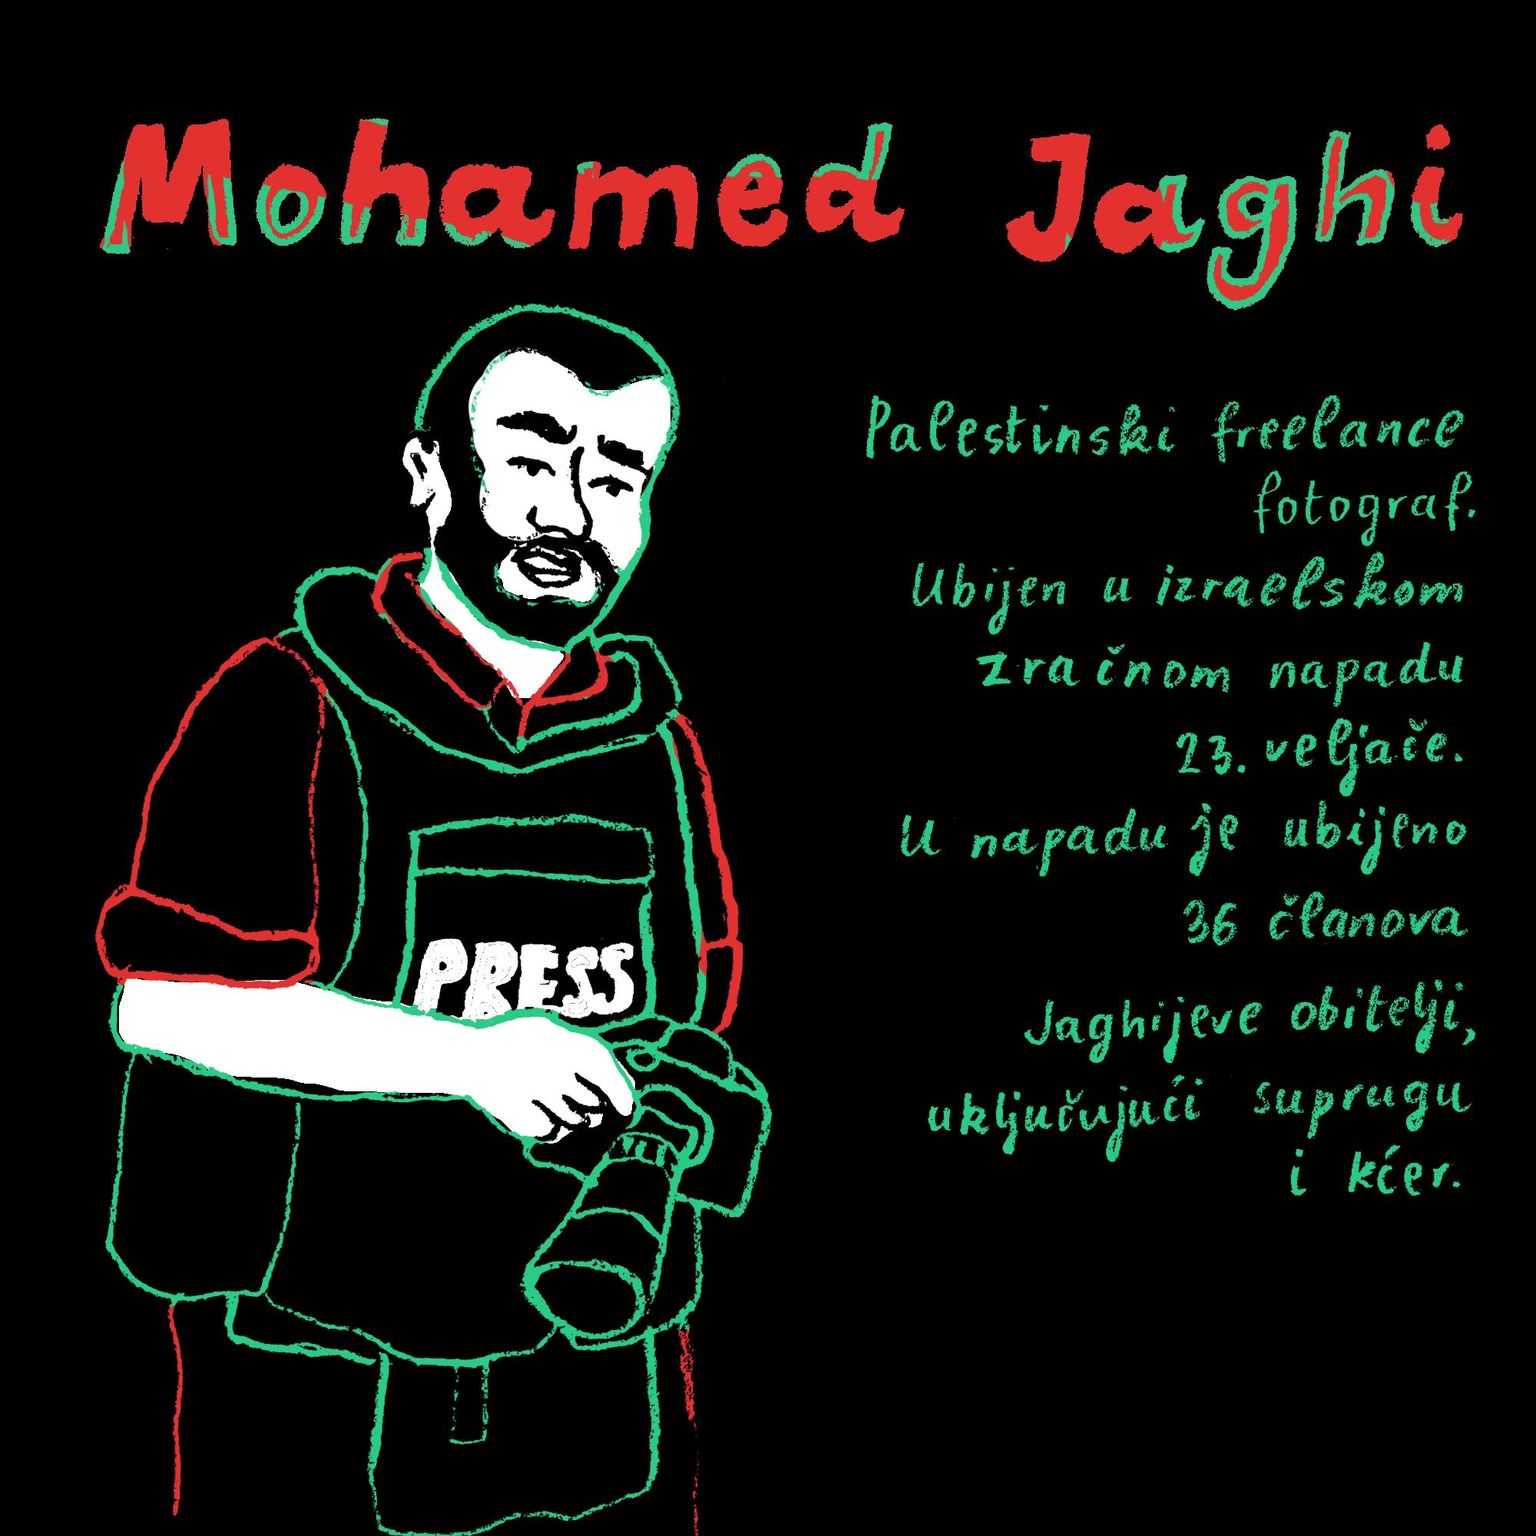 Mohamed Jaghi
Palestinski freelance
fotograf.
Ubijen u izraelskom
zračnom napadu
23. veljače.
U napadu je ubijeno
36 članova
Jaghijeve obitelji,
uključujući suprugu
i kćer.
PRESS